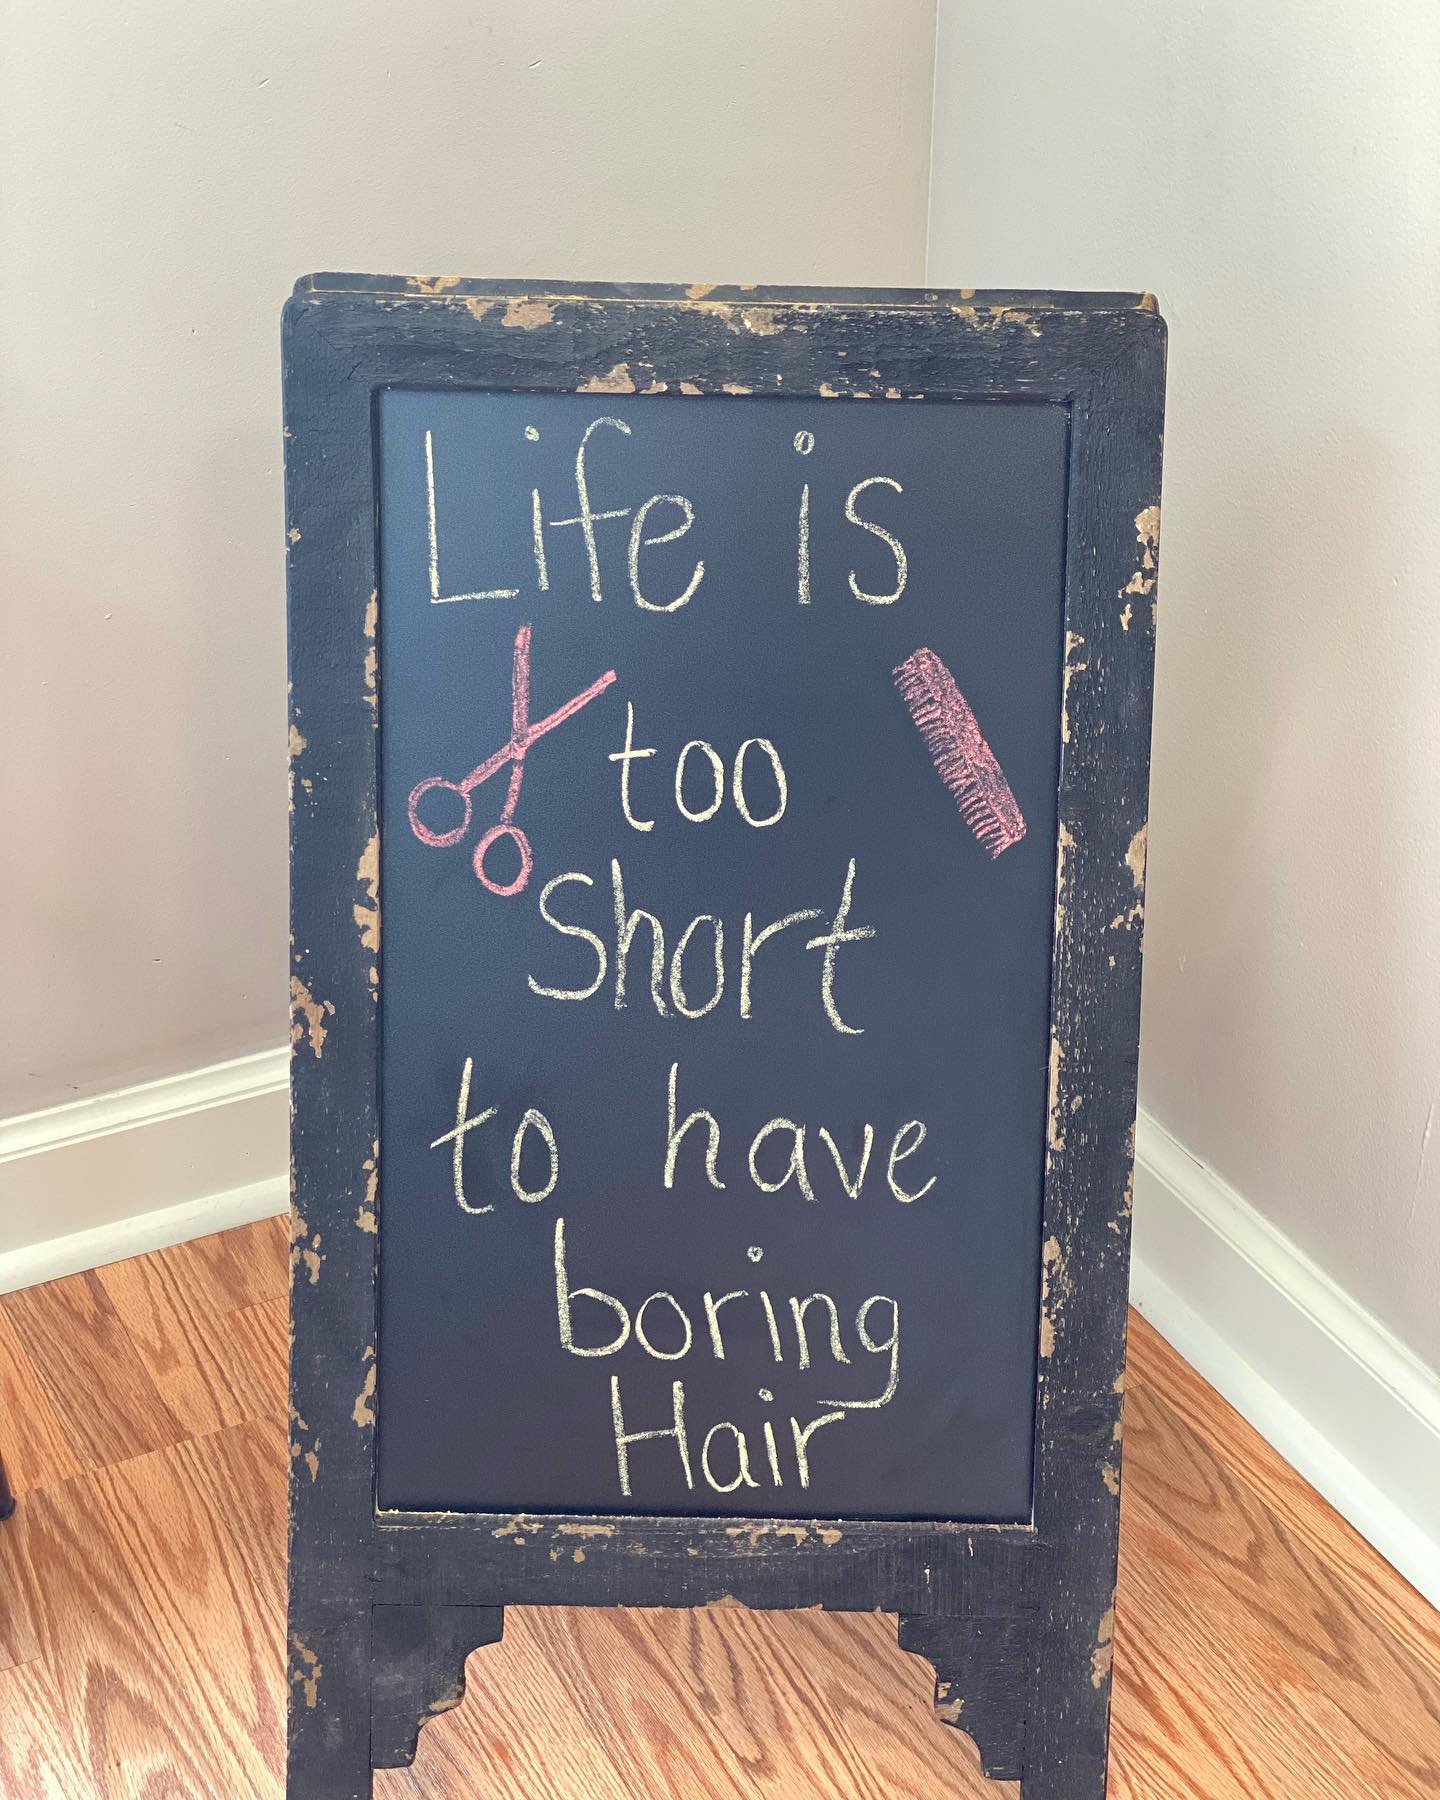 Life is
too
Short
to have
boring
Hair